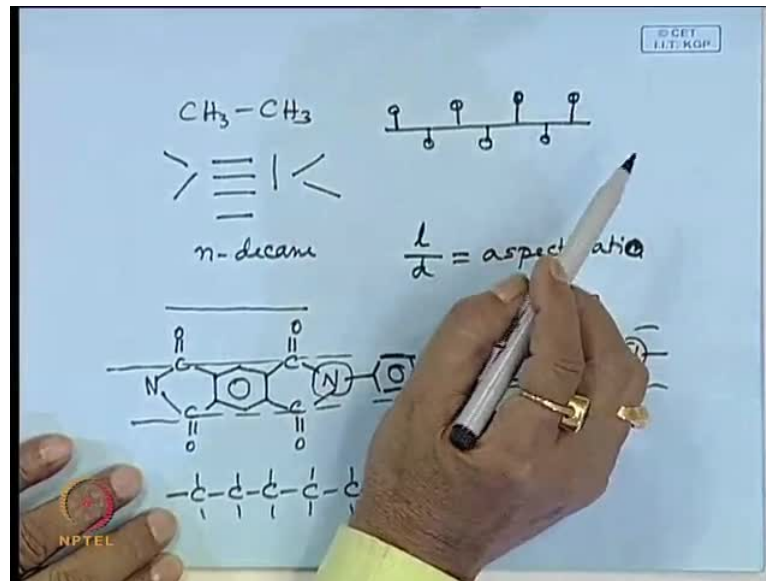 © CET
I.I.T. KGP
CH₃ – CH₃
n-decane
l/d = aspect ratio
O O
|| ||
C C
N O N O
C C
|| ||
O O
-C-C-C-C-C
NPTEL